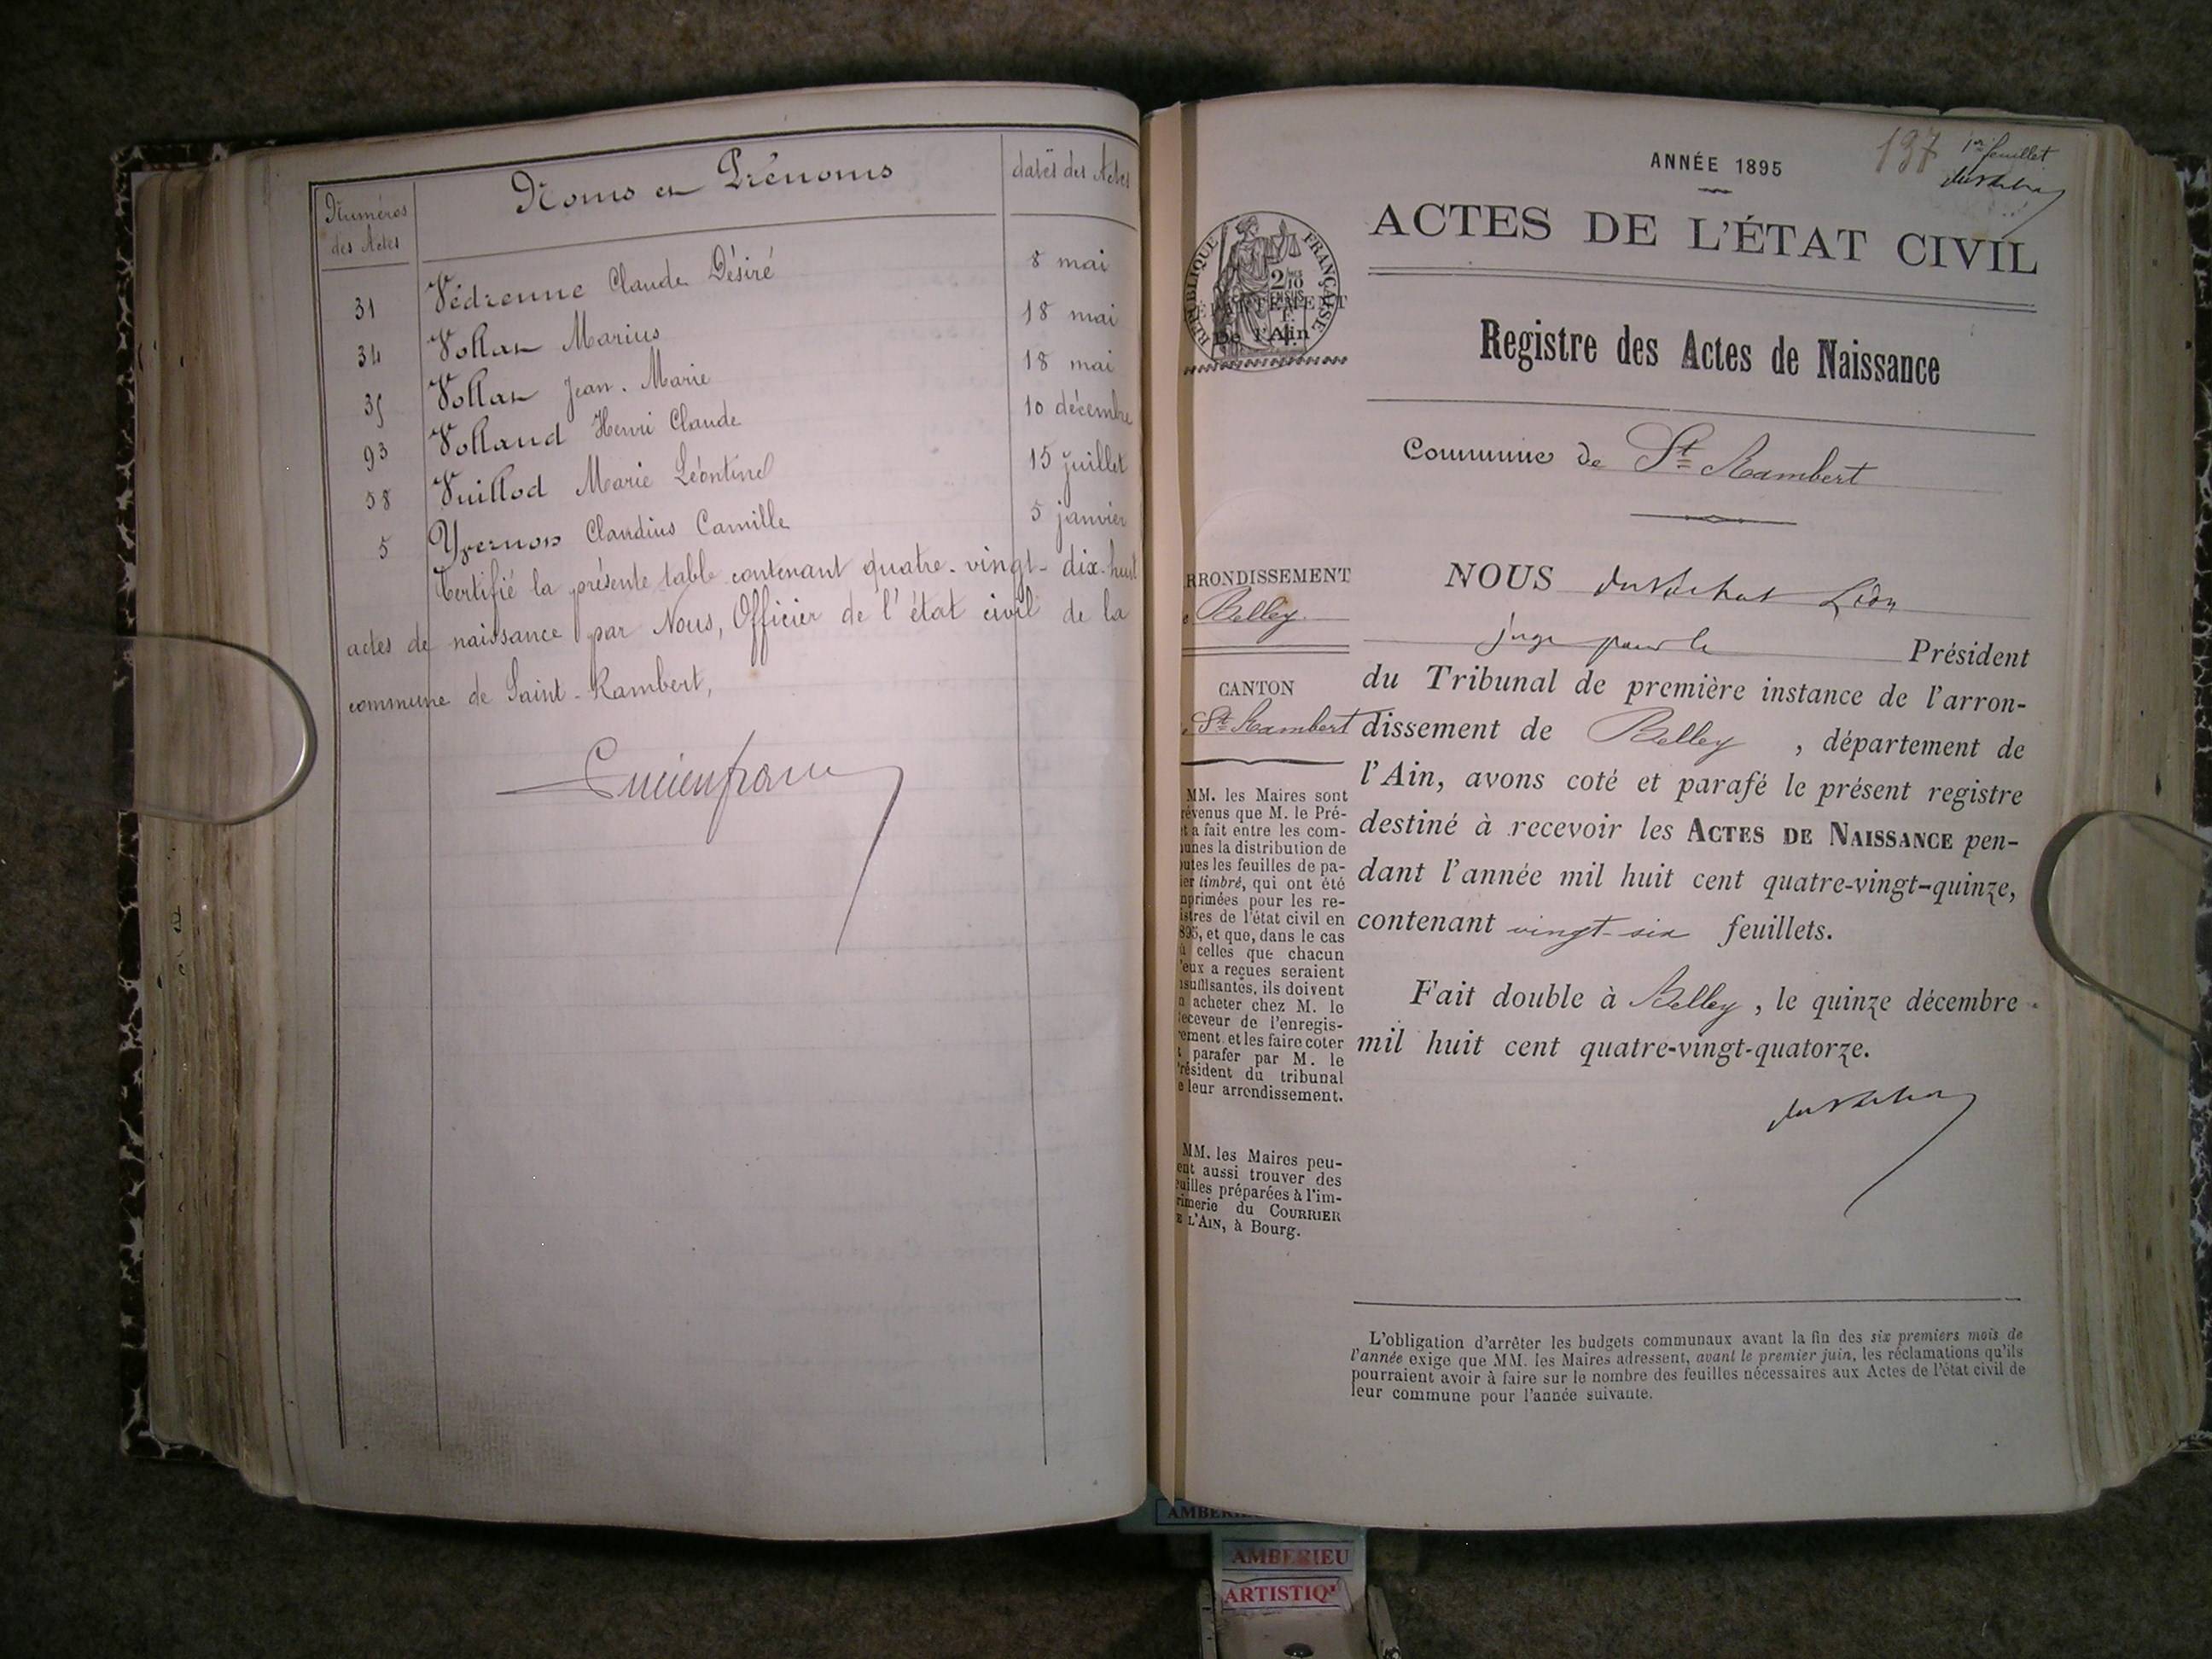 Numéros
des Actes
Noms et Prénoms
dates des Actes
31 Védrenne Claude Désiré 8 mai
34 Vollat Marius 18 mai
35 Vollat Jean-Marie 18 mai
93 Volland Henri Claude 10 décembre
58 Vuillod Marie Léontine 15 juillet
5 Yvernon Claudius Camille 5 janvier
Certifié la présente table contenant quatre-vingt-dix-huit
actes de naissance par Nous, Officier de l'état civil de la
commune de Saint-Rambert,
137
1er feuillet
ANNÉE 1895
ACTES DE L'ÉTAT CIVIL
RÉPUBLIQUE FRANÇAISE
DÉPARTEMENT
De l'Ain
Registre des Actes de Naissance
Commune de St Rambert
RRONDISSEMENT
e Belley
CANTON
St Rambert
MM. les Maires sont
révenus que M. le Pré-
et a fait entre les com-
unes la distribution de
outes les feuilles de pa-
ier timbré, qui ont été
nprimées pour les re-
istres de l'état civil en
895, et que, dans le cas
ù celles que chacun
'eux a reçues seraient
nsuffisantes, ils doivent
n acheter chez M. le
eceveur de l'enregis-
rement et les faire coter
t parafer par M. le
résident du tribunal
e leur arrondissement.
MM. les Maires peu-
ent aussi trouver des
euilles préparées à l'im-
rimerie du COURRIER
E L'AIN, à Bourg.
NOUS Léon
juge pour le Président
du Tribunal de première instance de l'arron-
dissement de Belley, département de
l'Ain, avons coté et parafé le présent registre
destiné à recevoir les ACTES DE NAISSANCE pen-
dant l'année mil huit cent quatre-vingt-quinze,
contenant vingt-six feuillets.
Fait double à Belley, le quinze décembre
mil huit cent quatre-vingt-quatorze.
L'obligation d'arrêter les budgets communaux avant la fin des six premiers mois de
l'année exige que MM. les Maires adressent, avant le premier juin, les réclamations qu'ils
pourraient avoir à faire sur le nombre des feuilles nécessaires aux Actes de l'état civil de
leur commune pour l'année suivante.
AMBERIEU
ARTISTIQ